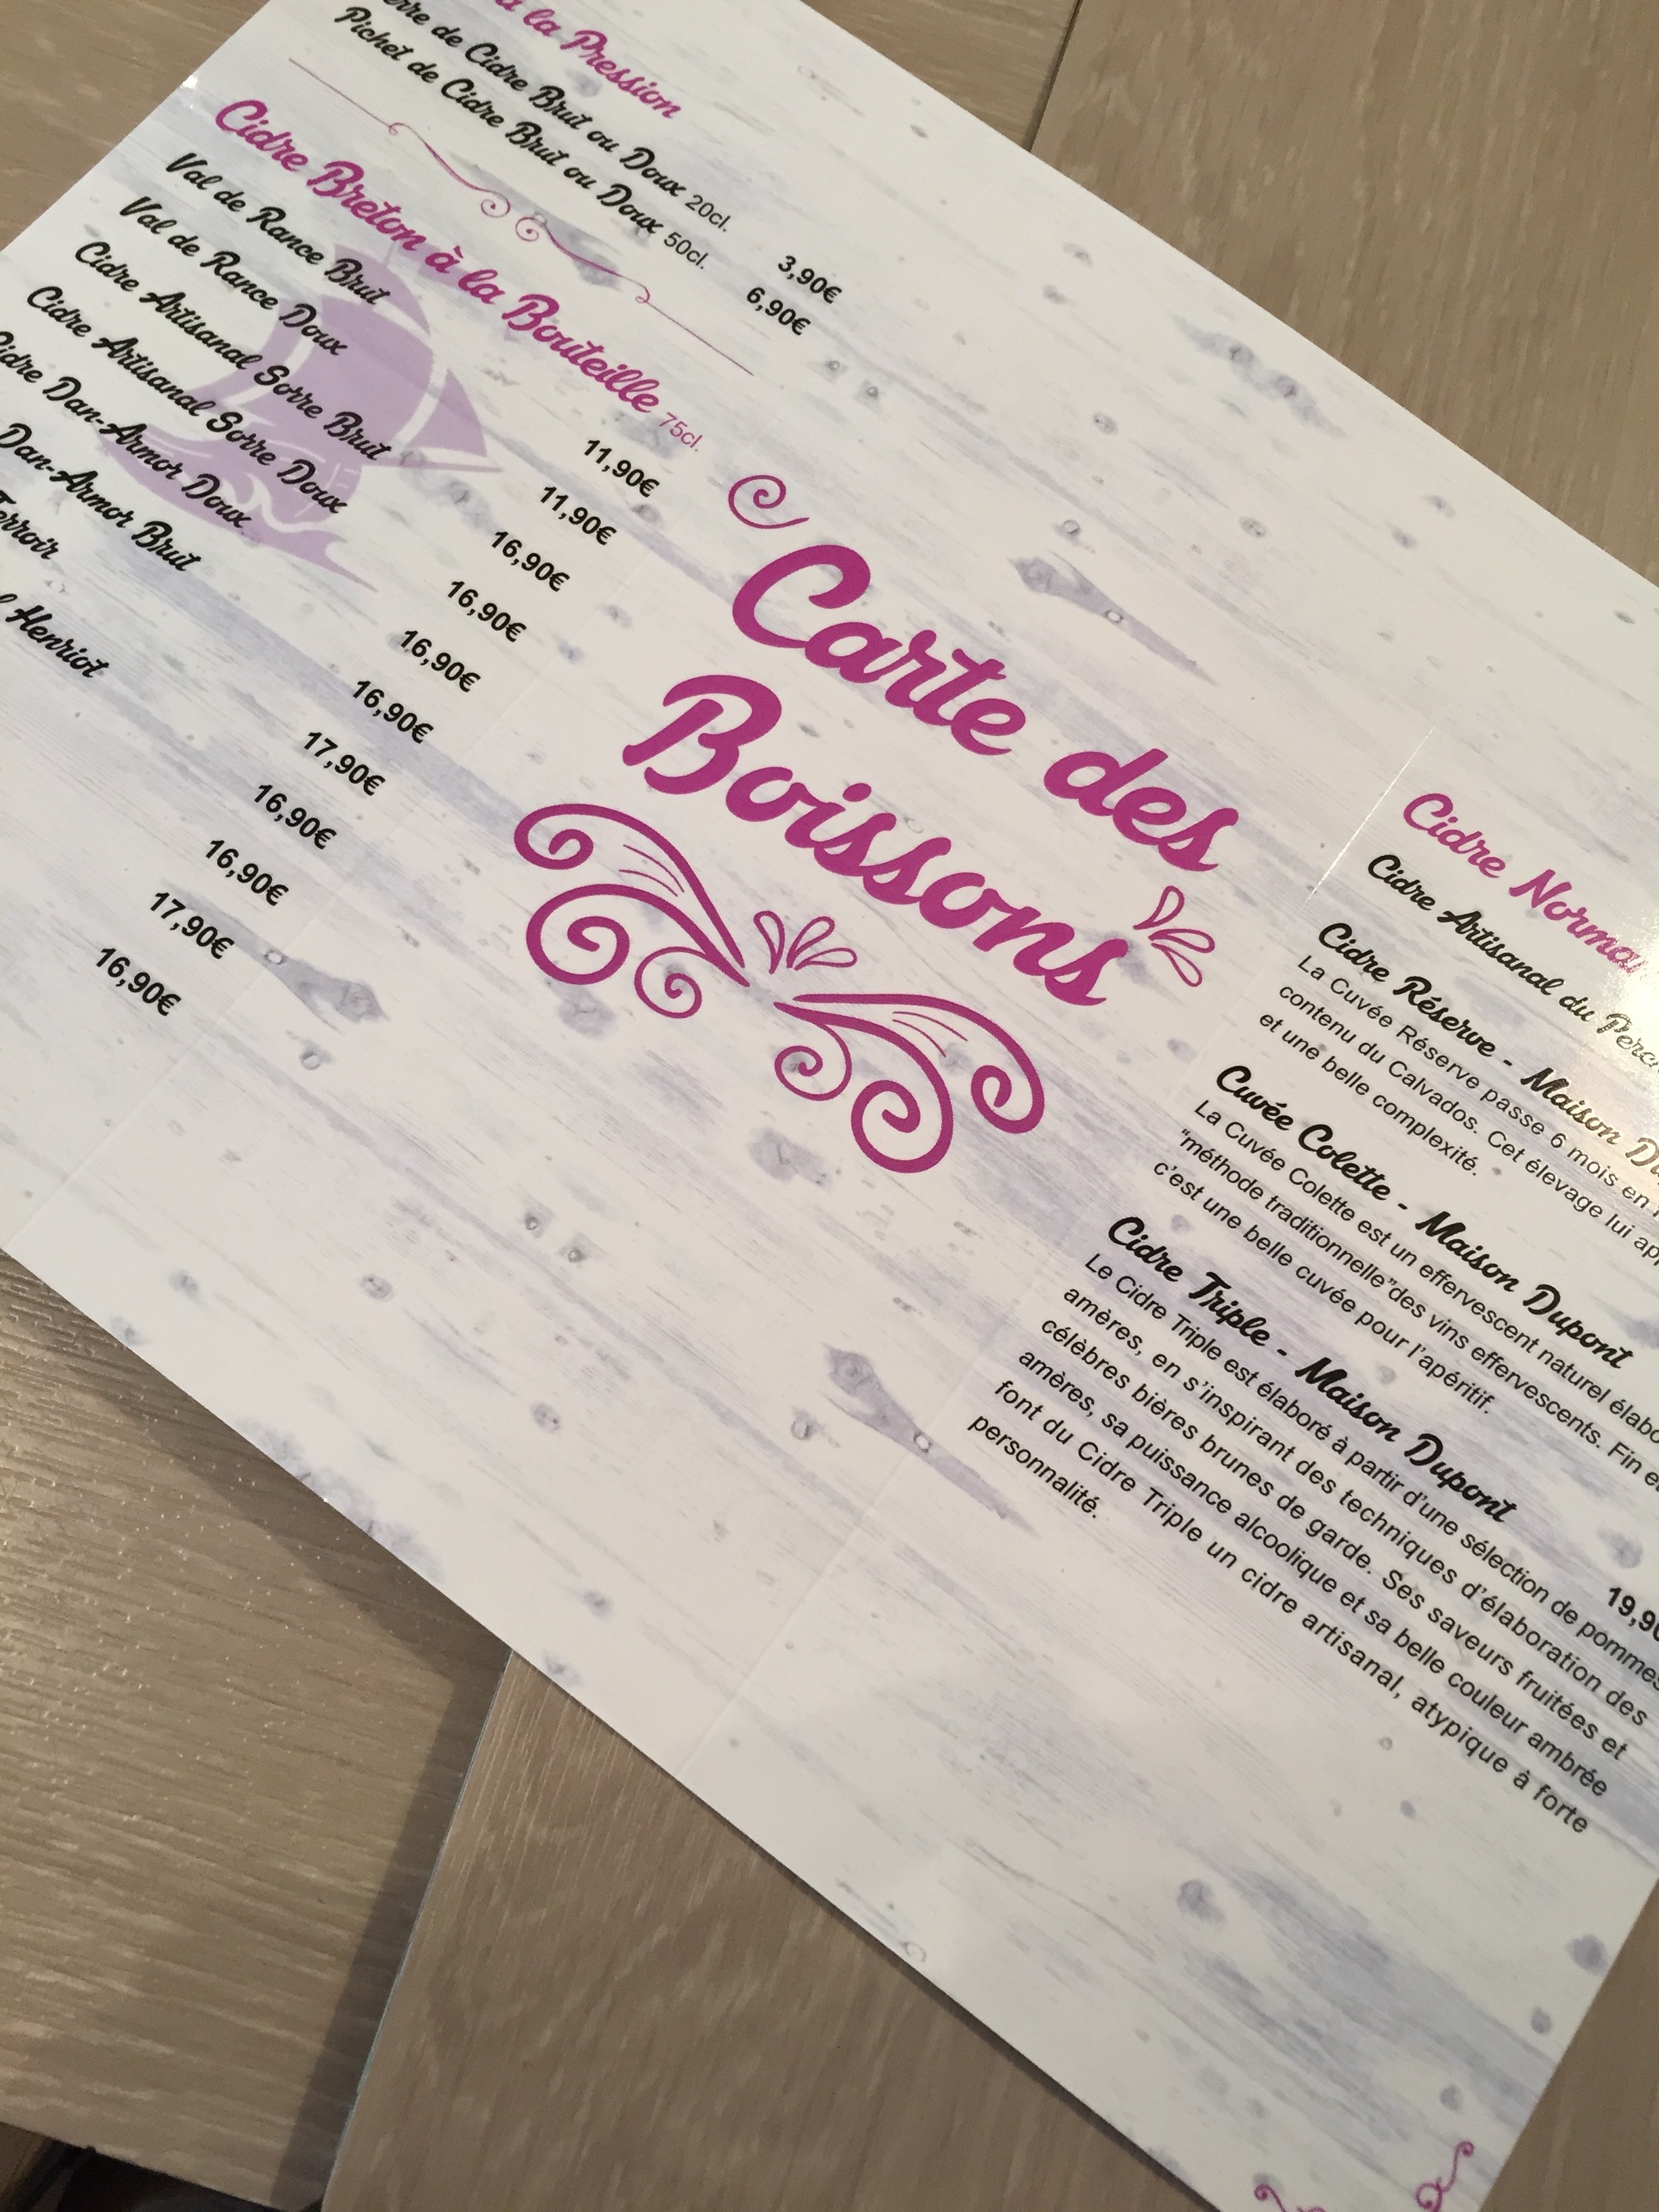 à la Pression
de Cidre Brut ou Doux 20cl. 3,90€
Pichet de Cidre Brut ou Doux 50cl. 6,90€
Cidre Breton à la Bouteille 75cl.
Val de Rance Brut 11,90€
Val de Rance Doux 11,90€
Cidre Artisanal Sorre Brut 16,90€
Cidre Artisanal Sorre Doux 16,90€
Cidre Dan-Armor Doux 16,90€
Dan-Armor Brut 16,90€
Terroir 17,90€
16,90€
Henriot 16,90€
17,90€
16,90€
Carte des
Boissons
Cidre
Cidre Artisanal du
Cidre Réserve - Maison
La Cuvée Réserve passe 6 mois en
contenu du Calvados. Cet élevage lui
et une belle complexité.
Cuvée Colette - Maison Dupont
La Cuvée Colette est un effervescent naturel
“méthode traditionnelle”des vins effervescents. Fin
c’est une belle cuvée pour l’apéritif.
Cidre Triple - Maison Dupont
Le Cidre Triple est élaboré à partir d’une sélection de pommes
amères, en s’inspirant des techniques d’élaboration des
célèbres bières brunes de garde. Ses saveurs fruitées et
amères, sa puissance alcoolique et sa belle couleur ambrée
font du Cidre Triple un cidre artisanal, atypique à forte
personnalité.